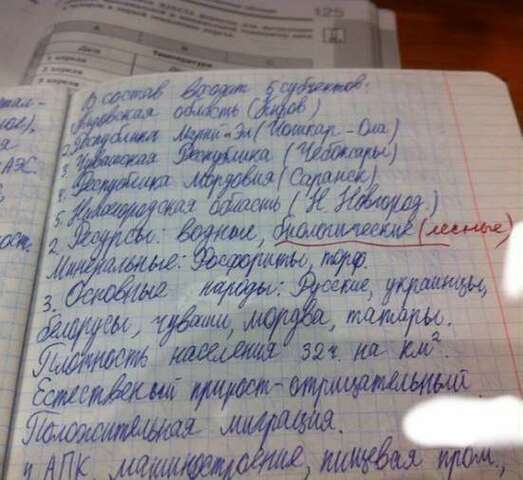 125
А
Дата
Температура
1 апреля
2 апреля
В состав входит 5 субъектов:
Кировская область (Киров)
2. Республика Марий-Эл (Йошкар-Ола)
3. Чувашская Республика (Чебоксары)
4. Республика Мордовия (Саранск)
5. Нижегородская область (Н. Новгород)
2. Ресурсы: водные, биологические (лесные)
Минеральные: Фосфориты, торф.
3. Основные народы: Русские, украинцы,
белорусы, чуваши, мордва, татары.
Плотность населения 32 ч. на км².
Естественый прирост-отрицательный.
Положительная миграция.
4 АПК, машиностроение, пищевая пром.,